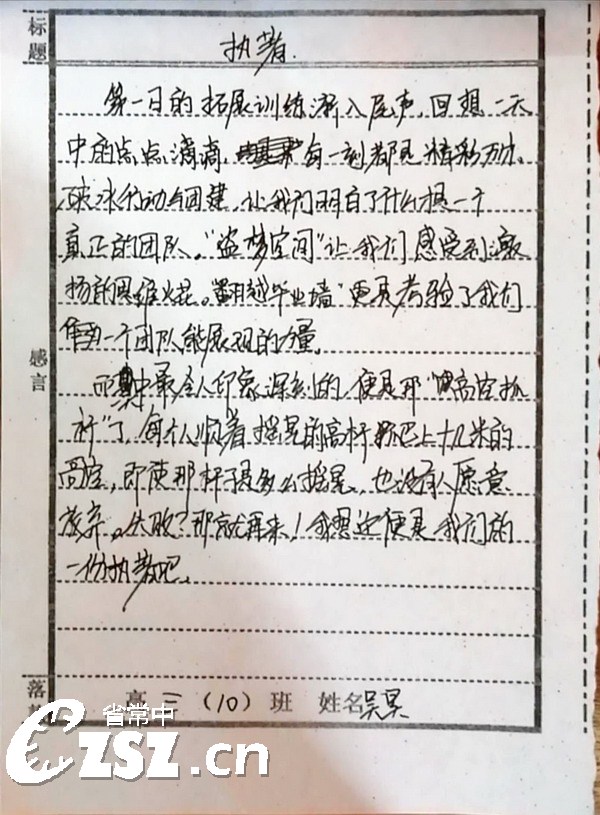 标题
执着.
第一日的拓展训练渐入尾声，回想一天
中的点点滴滴，每一刻都是精彩万分。
破冰行动与团建，让我们明白了什么是一个
真正的团队。“盗梦空间”让我们感受到激
扬的思维火花。“翻越毕业墙”更是考验了我们
作为一个团队能展现的力量。
而其中最令人印象深刻的，便是那“高空抓
杆”了，每个人顺着摇晃的高杆爬上十几米的
高空，即使那杆子是多么摇晃，也没有人愿意
放弃。失败？那就再来！我想这便是我们的
一份执着吧。
感言
落
高二（10）班 姓名 吴昊
省常中
CZSZ.cn